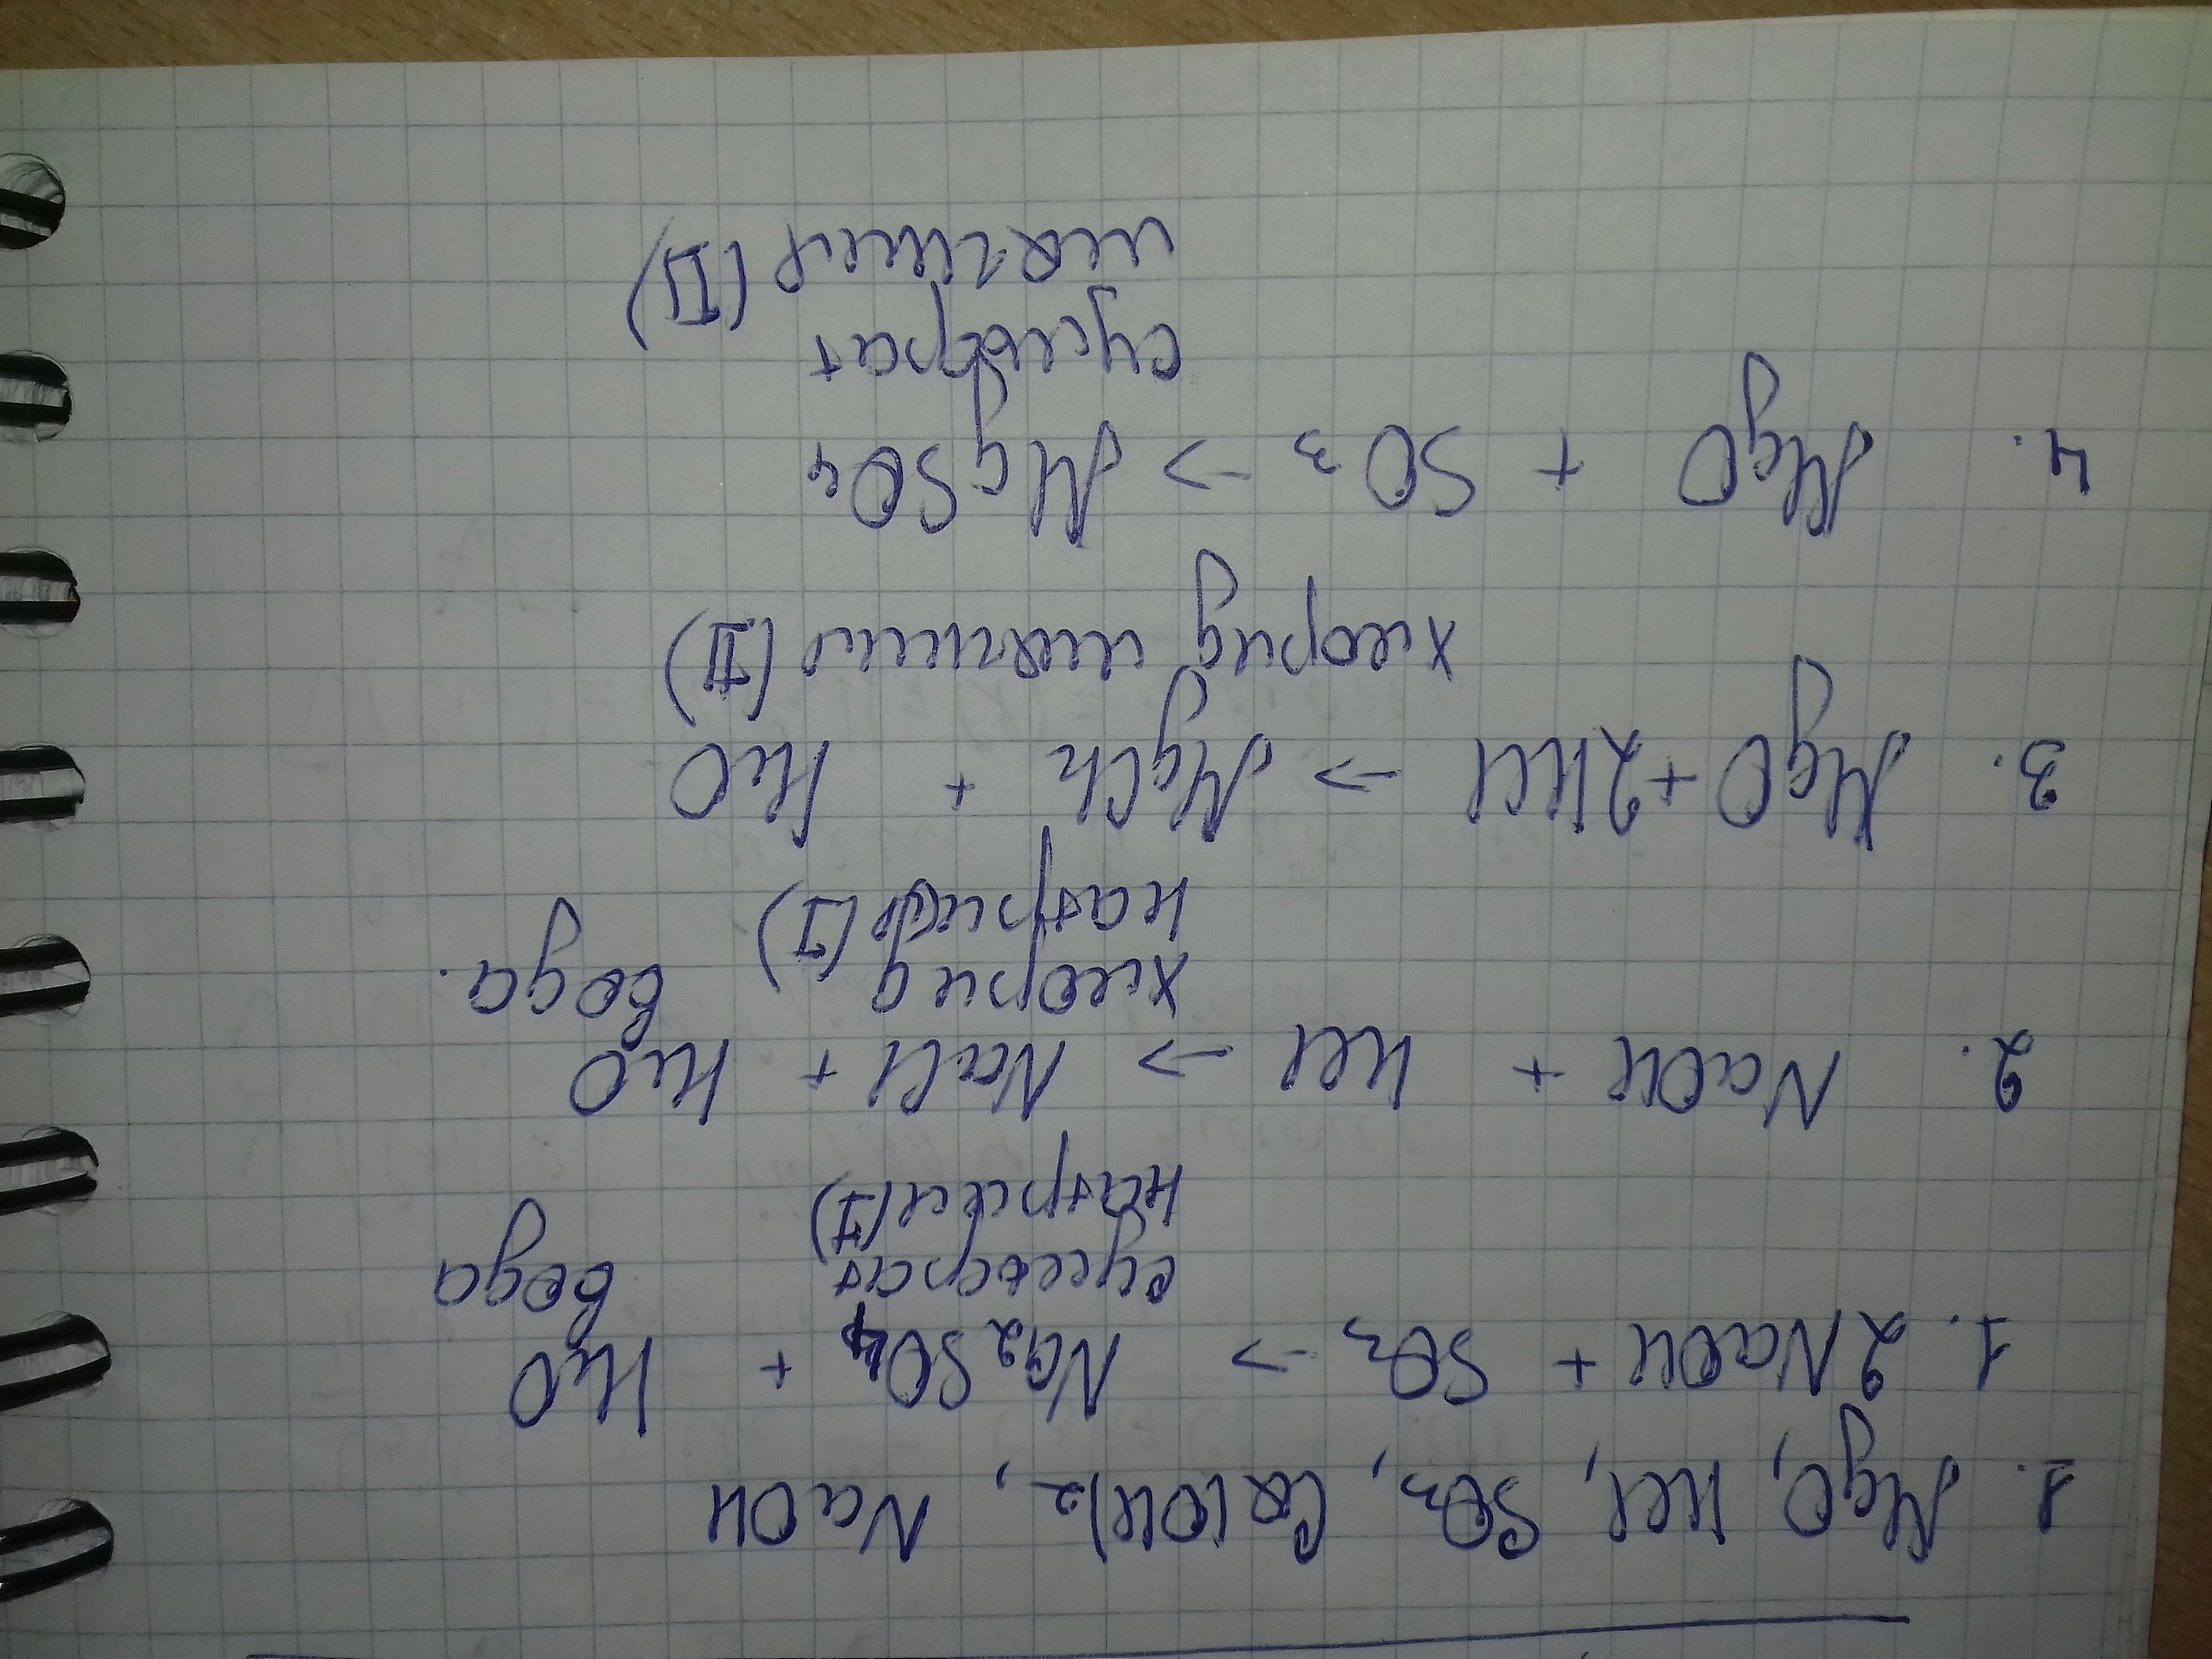 1. MgO, HCl, SO3, Ca(OH)2, NaOH
1. 2NaOH + SO3 -> Na2SO4 + H2O
сульфат вода
натрия(I)
2. NaOH + HCl -> NaCl + H2O
хлорид вода.
натрия(I)
3. MgO + 2HCl -> MgCl2 + H2O
хлорид магния (II)
4. MgO + SO3 -> MgSO4
сульфат
магния (II)